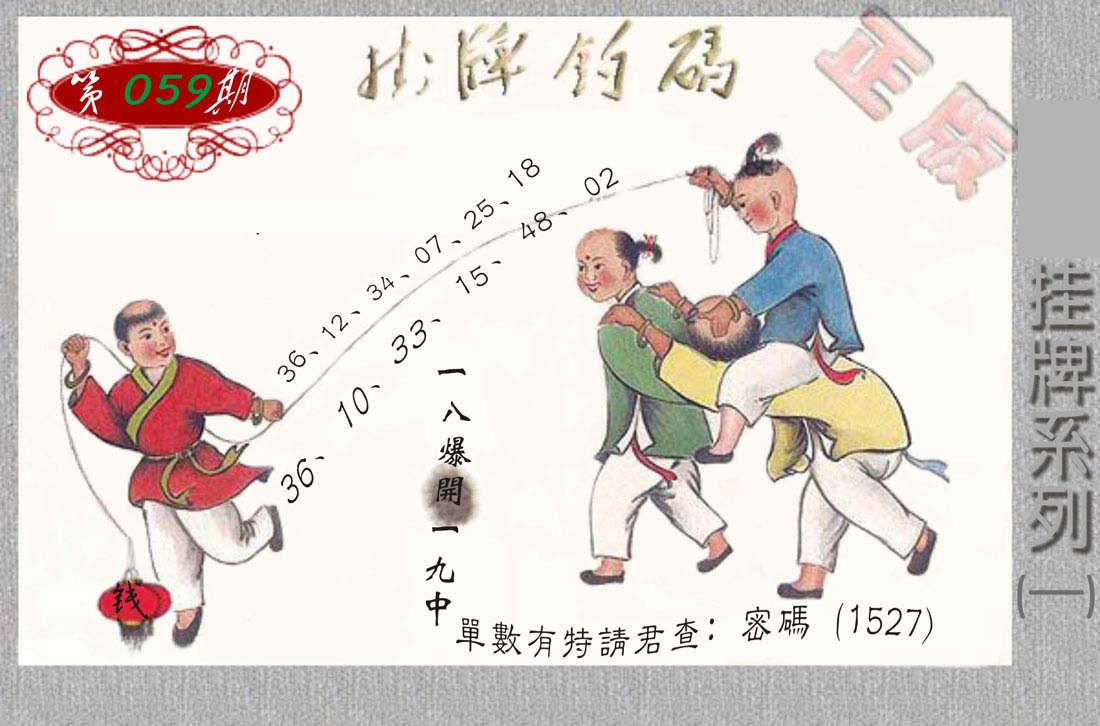 第059期
掛牌釣碼
正版
36、12、34、07、25、18
36、10、33、15、48、02
一八爆開一九中
钱
單數有特請君查：密碼（1527）
挂牌系列(一)